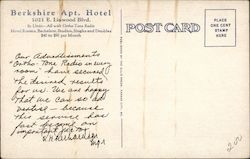 Berkshire Apt. Hotel
1021 E. Linwood Blvd.
84 Units—All with Ortho Tone Radio
Hotel Rooms, Bachelors, Studios, Singles and Doubles
$40 to $90 per Month
POST CARD
PLACE
ONE CENT
STAMP
HERE
Our Advertisements
"Ortho-Tone Radio in every
room" have secured
the desired results
for us. We are happy
that we can so ad-
vertise - because
this service has
just become an
important factor
W.H. Richardson
Mgr
200